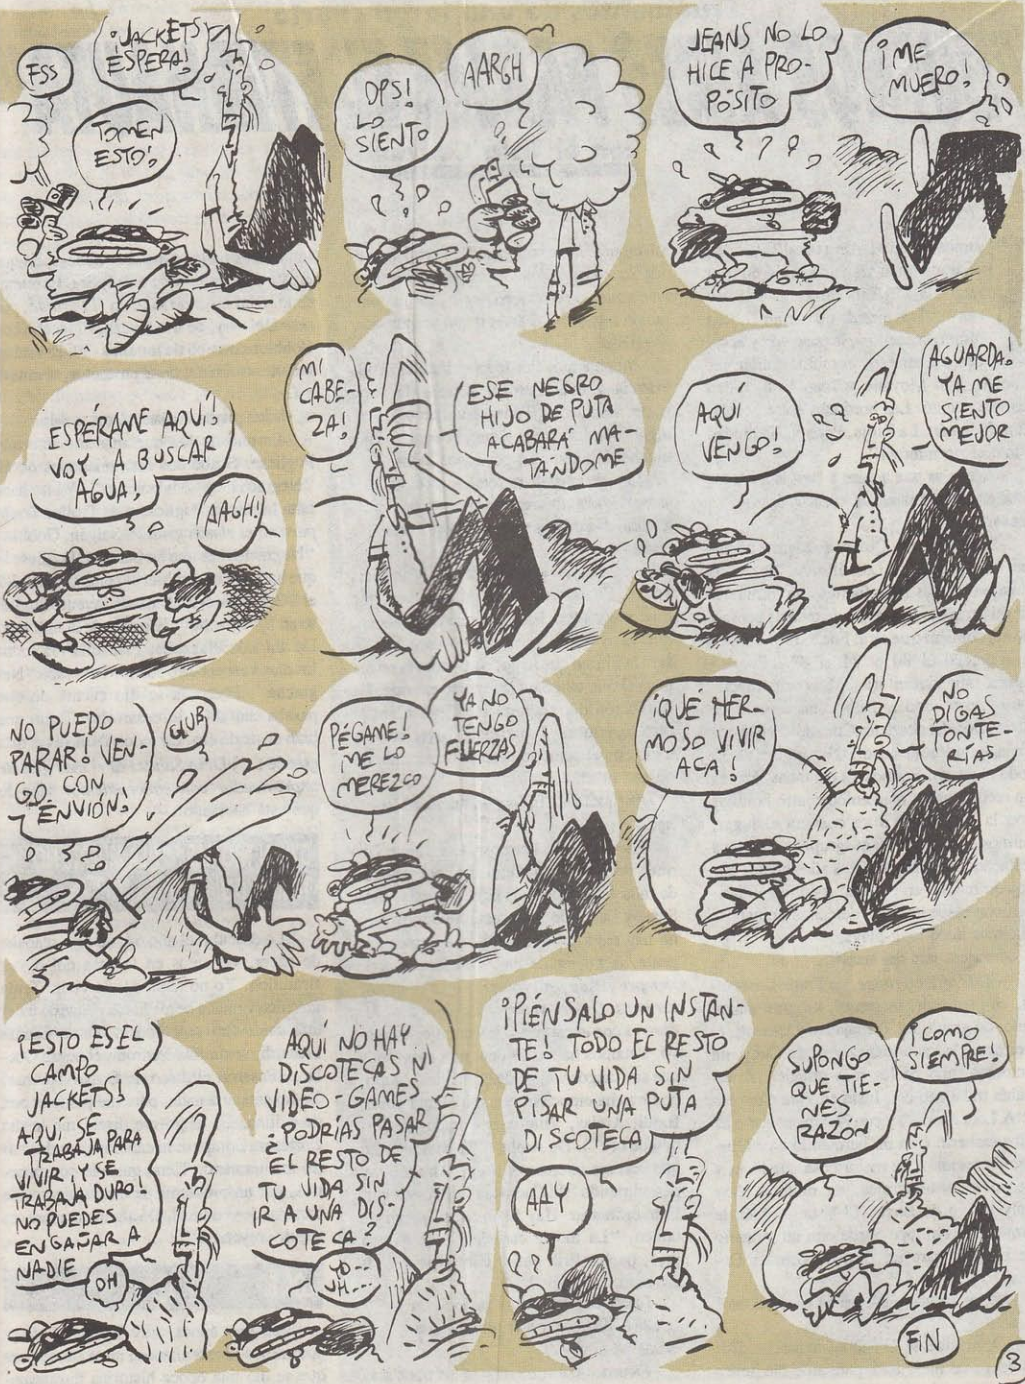 FSS
¡JACKETS
ESPERA!
TOMEN
ESTO!
OPS!
LO
SIENTO
AARGH
JEANS NO LO
HICE A PRO-
PÓSITO
¡ME
MUERO!
ESPÉRAME AQUÍ!
VOY A BUSCAR
AGUA!
AAGH!
MI
CABE-
ZA!
ESE NEGRO
HIJO DE PUTA
ACABARÁ MA-
TANDOME
AQUÍ
VENGO!
AGUARDA!
YA ME
SIENTO
MEJOR
NO PUEDO
PARAR! VEN-
GO CON
ENVIÓN!
GLUB
PÉGAME!
ME LO
MEREZCO
YA NO
TENGO
FUERZAS
¡QUÉ HER-
MOSO VIVIR
ACA!
NO
DIGAS
TONTE-
RÍAS
¡ESTO ES EL
CAMPO
JACKETS!
AQUÍ SE
TRABAJA PARA
VIVIR ¡Y SE
TRABAJA DURO!
NO PUEDES
ENGAÑAR A
NADIE
OH
AQUÍ NO HAY
DISCOTECAS NI
VIDEO-GAMES
¿PODRÍAS PASAR
EL RESTO DE
TU VIDA SIN
IR A UNA DIS-
COTECA?
YO...
UH...
¡PIÉNSALO UN INSTAN-
TE! TODO EL RESTO
DE TU VIDA SIN
PISAR UNA PUTA
DISCOTECA
AAY
SUPONGO
QUE TIE-
NES
RAZÓN
¡COMO
SIEMPRE!
FIN
3